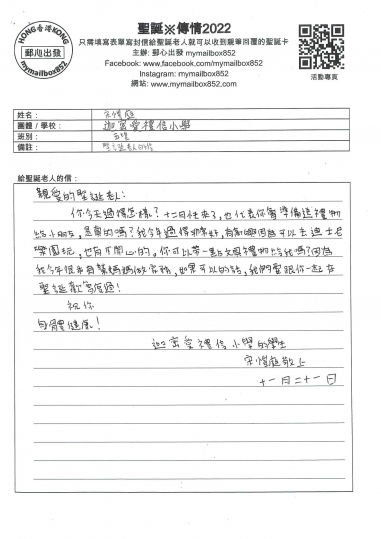 HONG香港KONG
郵心出發
mymailbox852
聖誕※傳情2022
只需填寫表單寫封信給聖誕老人就可以收到親筆回覆的聖誕卡
主辦: 郵心出發 mymailbox852
Facebook: www.facebook.com/mymailbox852
Instagram: mymailbox852
網站: www.mymailbox852.com
活動專頁
姓名：
團體 / 學校： 迦密愛禮信小學
班別：
備註： 聖誕老人的信
給聖誕老人的信：
親愛的聖誕老人：
你今天過得怎樣？十二月快來了，也代表你會準備送禮物
給小朋友，是真的嗎？我今年過得非常好，有新奇因為可以去迪士尼
樂園玩，也有不開心的。你可以帶一點文具禮物給我嗎？因為
我今年很平有幫媽媽做家務，如果可以的話，我們會跟你一起在
聖誕歡笑度過！
祝你
身體健康！
迦密愛禮信小學的學生
敬上
十一月二十一日